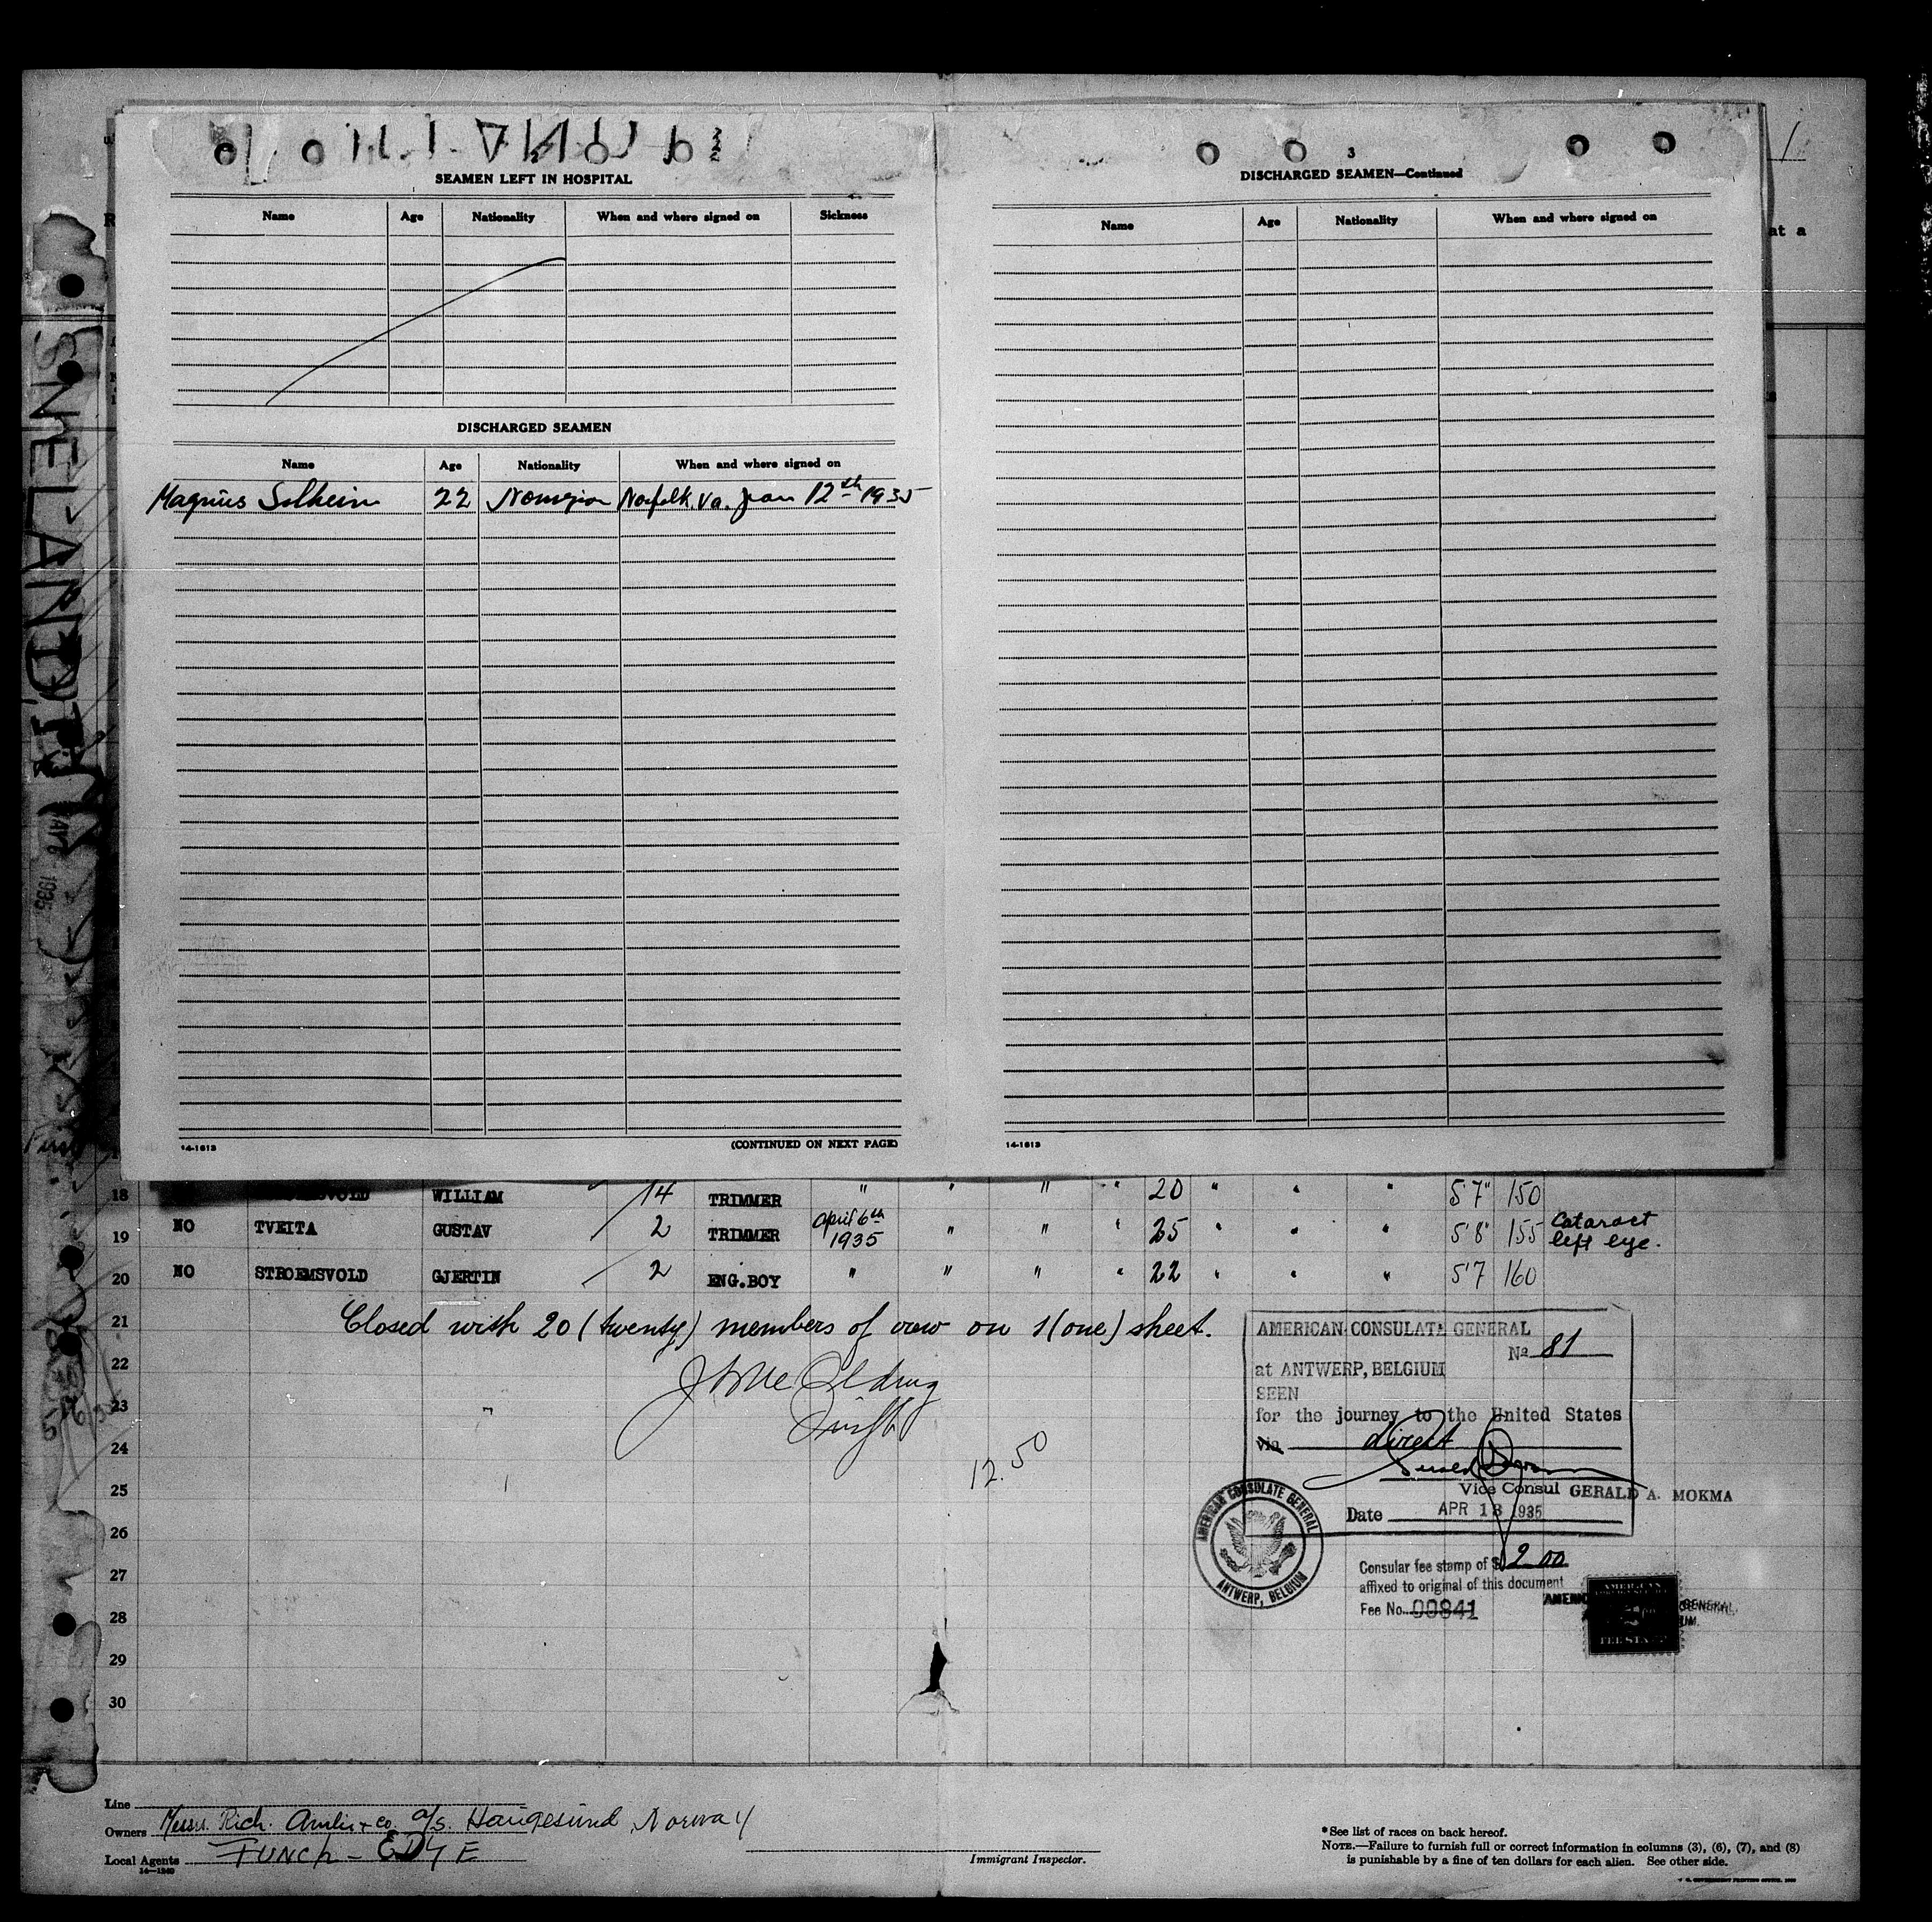 SEAMEN LEFT IN HOSPITAL
Name Age Nationality When and where signed on Sickness
DISCHARGED SEAMEN
Name Age Nationality When and where signed on
Magnus Solheim 22 Norwegian Norfolk. Va. Jan 12th 1935
14-1613 (CONTINUED ON NEXT PAGE)
3
DISCHARGED SEAMEN—Continued
Name Age Nationality When and where signed on
14-1613
at a
SNELAND I
MAY 1935
18 WILLIAM 14 TRIMMER " " " " 20 " " " 5'7" 150
19 NO TVEITA GUSTAV 2 TRIMMER April 6th 1935 " " " 25 " " " 5'8" 155 Cataract left eye.
20 NO STROEMSVOLD GJERTIN 2 ENG.BOY " " " " 22 " " " 5'7 160
21 Closed with 20 (twenty) members of crew on 1 (one) sheet.
22
23
24
25
26
27
28
29
30
12.50
AMERICAN CONSULATE GENERAL
No 81
at ANTWERP, BELGIUM
SEEN
for the journey to the United States
via direct
Vice Consul GERALD A. MOKMA
Date APR 18 1935
AMERICAN CONSULATE GENERAL
ANTWERP, BELGIUM
Consular fee stamp of $ 2.00
affixed to original of this document
Fee No. 00841
AMERICAN
FEE STAMP
GENERAL
Line
Owners Messrs. Rich. Amlie & Co. a/s. Haugesund, Norway
Local Agents FUNCH - EDYE
14-1240
Immigrant Inspector.
*See list of races on back hereof.
NOTE.—Failure to furnish full or correct information in columns (3), (6), (7), and (8)
is punishable by a fine of ten dollars for each alien. See other side.
U. S. GOVERNMENT PRINTING OFFICE